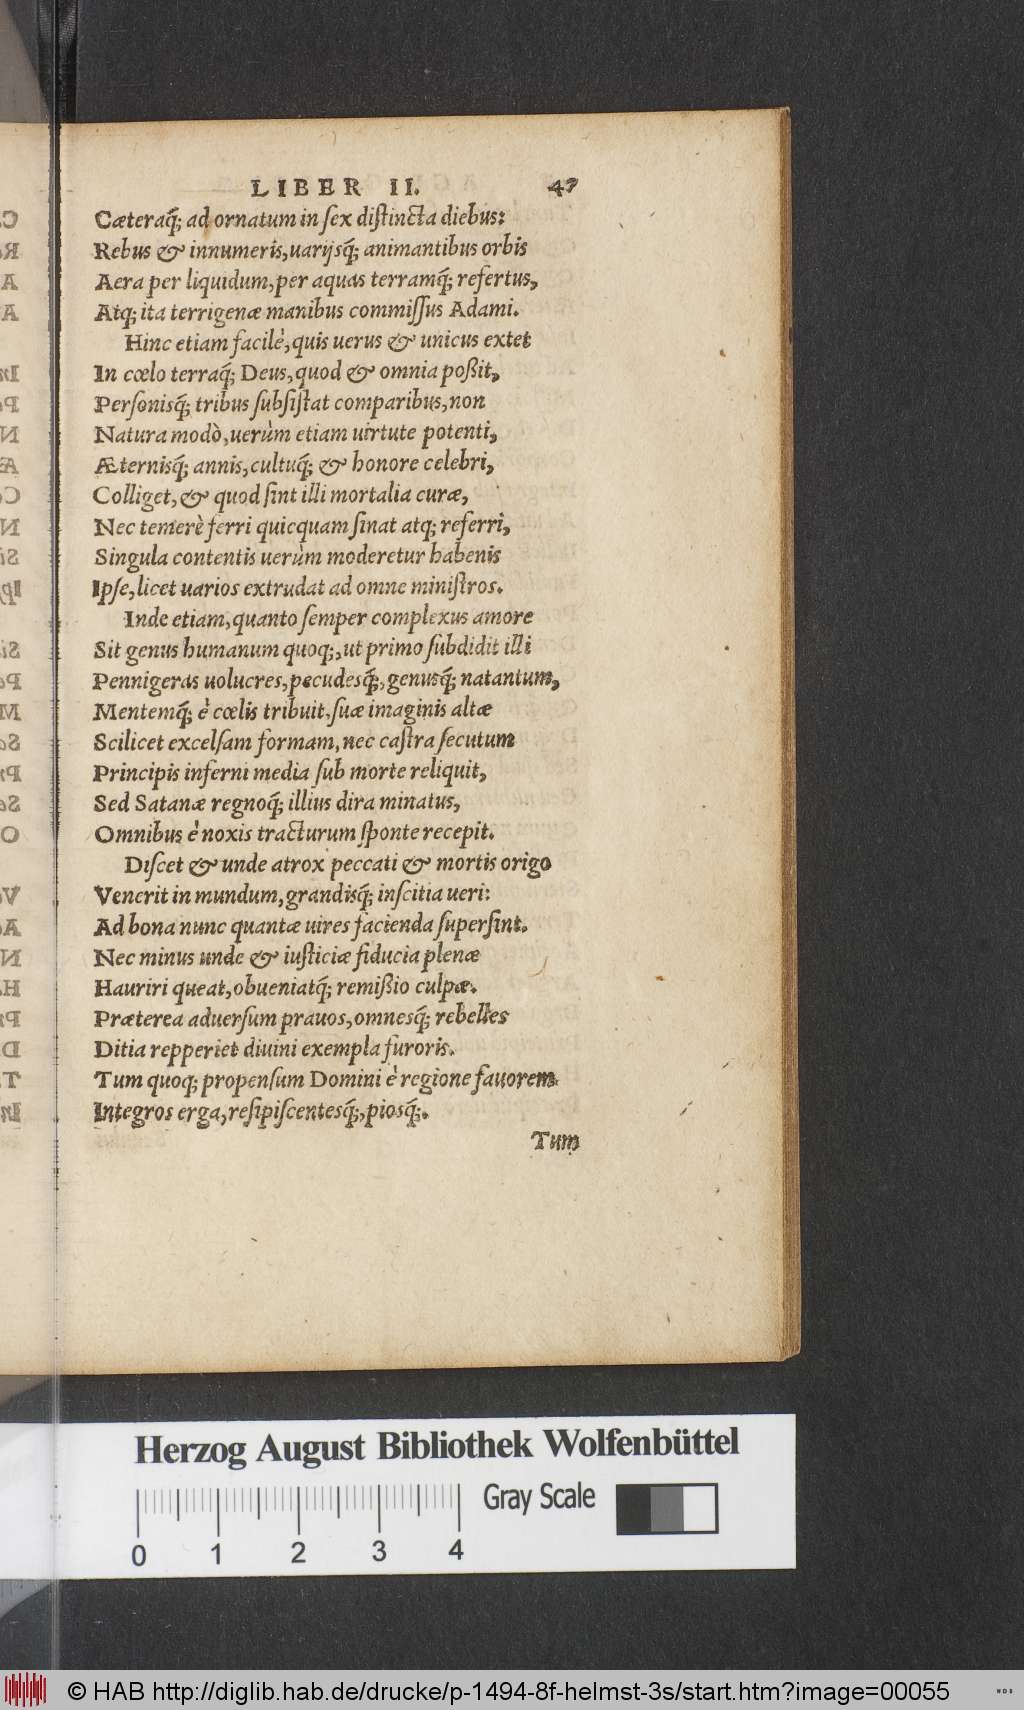 LIBER II. 47
Cæteraq́; ad ornatum in ſex diſtincta diebus:
Rebus & innumeris, uarijsq́; animantibus orbis
Aera per liquidum, per aquas terramq́; refertus,
Atq; ita terrigenæ manibus commiſſus Adami.
Hinc etiam facilè, quis uerus & unicus extet
In cœlo terraq́; Deus, quod & omnia poßit,
Perſonisq́; tribus ſubſiſtat comparibus, non
Natura modò, uerùm etiam uirtute potenti,
Æternisq́; annis, cultuq́; & honore celebri,
Colliget, & quod ſint illi mortalia curæ,
Nec temerè ferri quicquam ſinat atq; referri,
Singula contentis uerùm moderetur habenis
Ipſe, licet uarios extrudat ad omne miniſtros.
Inde etiam, quanto ſemper complexus amore
Sit genus humanum quoq;, ut primo ſubdidit illi
Pennigeras uolucres, pecudesq́;, genusq́; natantum,
Mentemq́; è cœlis tribuit, ſuæ imaginis altæ
Scilicet excelſam formam, nec caſtra ſecutum
Principis inferni media ſub morte reliquit,
Sed Satanæ regnoq́; illius dira minatus,
Omnibus è noxis tracturum ſponte recepit.
Diſcet & unde atrox peccati & mortis origo
Venerit in mundum, grandisq́; inſcitia ueri:
Ad bona nunc quantæ uires facienda ſuperſint.
Nec minus unde & iuſticiæ fiducia plenæ
Hauriri queat, obueniatq́; remißio culpæ.
Præterea aduerſum prauos, omnesq́; rebelles
Ditia repperiet diuini exempla furoris.
Tum quoq; propenſum Domini è regione fauorem
Integros erga, reſipiſcentesq́;, piosq́;.
Tum
Herzog August Bibliothek Wolfenbüttel
0 1 2 3 4 Gray Scale
© HAB http://diglib.hab.de/drucke/p-1494-8f-helmst-3s/start.htm?image=00055